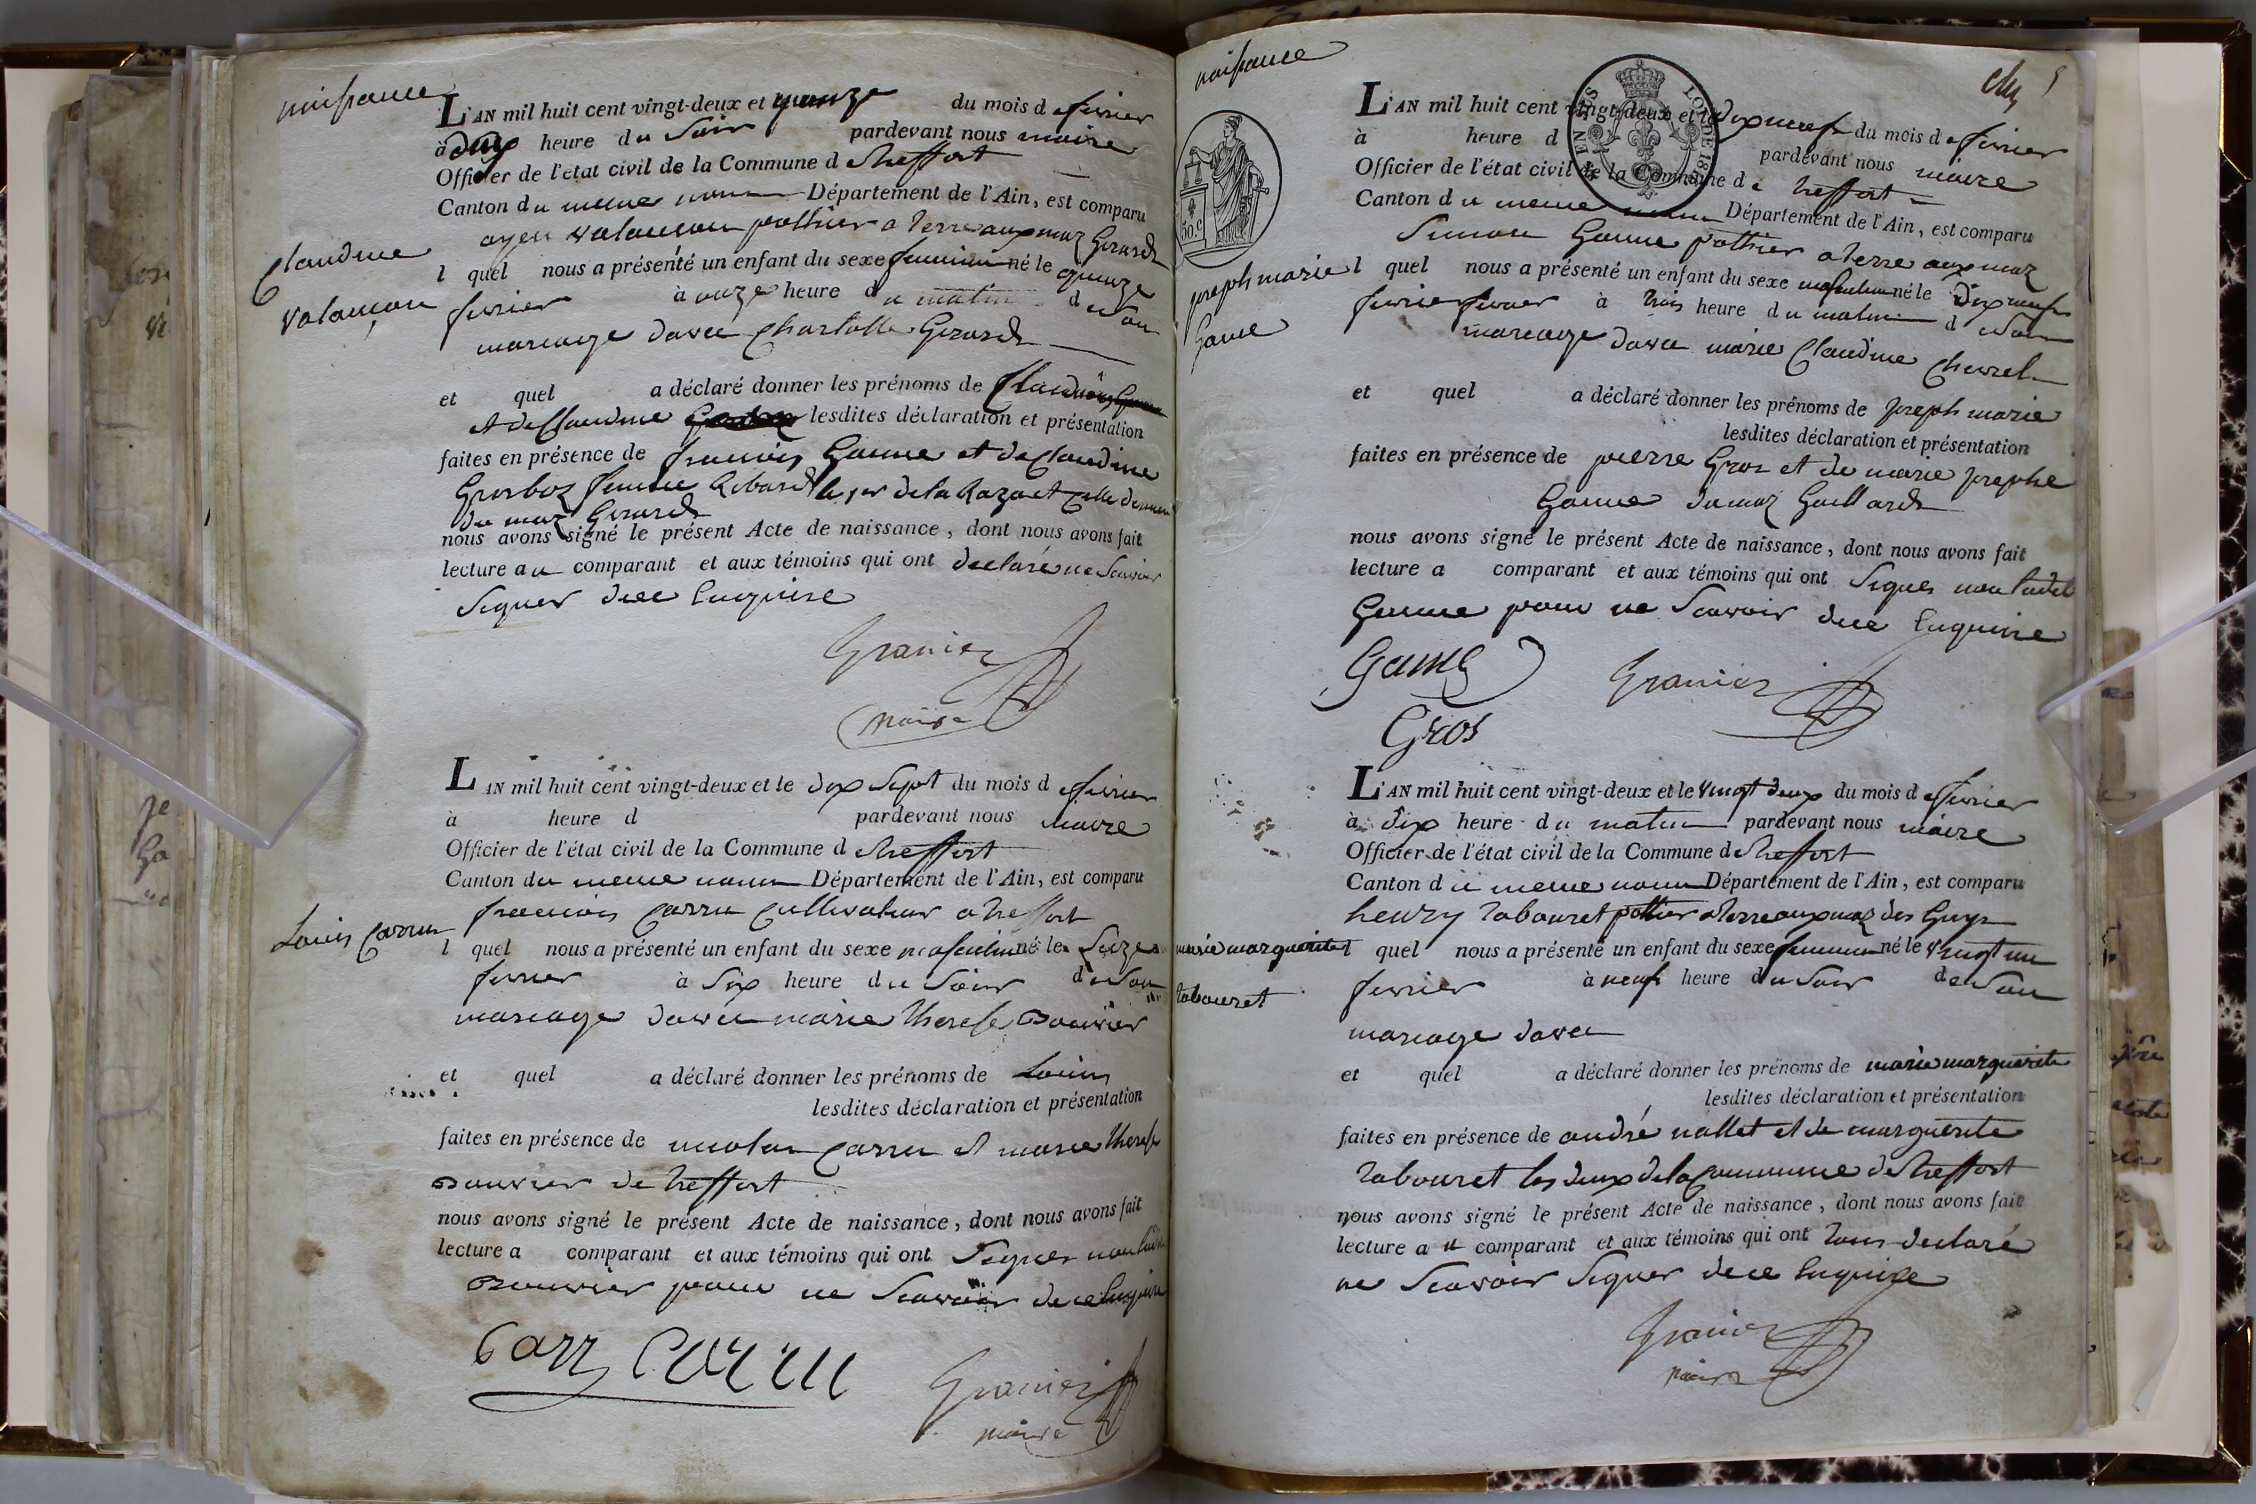 naissance
L'AN mil huit cent vingt-deux et quinze du mois de fevrier
à heure du Soir pardevant nous maire
Officier de l'etat civil de la Commune de treffort
Canton du meme nom Département de l'Ain, est comparu
potthier a terre aux maz Girards
Claudine
l quel nous a présenté un enfant du sexe feminin né le quinze
fevrier à onze heure du matin de Son
mariage davec Charlotte Girards
et quel a déclaré donner les prénoms de
et de Claudine lesdites déclaration et présentation
faites en présence de francois Ganne et de Claudine
Grosboz femme le 1er de la Raza et celle derniere
du maz Girards
nous avons signé le présent Acte de naissance, dont nous avons fait
lecture au comparant et aux témoins qui ont declaré ne Scavoir
Signer dece Enquise
Granier
maire
L'AN mil huit cent vingt-deux et le dix Sept du mois de fevrier
à heure d pardevant nous maire
Officier de l'état civil de la Commune de treffort
Canton du meme nom Département de l'Ain, est comparu
francois Carru Cultivateur a treffort
Louis Carru
l quel nous a présenté un enfant du sexe masculin né le Seize
fevrier à Six heure du Soir de Son
mariage davec marie therese Bouvier
et quel a déclaré donner les prénoms de Louis
lesdites déclaration et présentation
faites en présence de nicolas Carru et marie therese
Bouvier de treffort
nous avons signé le présent Acte de naissance, dont nous avons fait
lecture a comparant et aux témoins qui ont Signes non ladite
Bouvier pour ne Scavoir dece Enquise
Carru
Granier
maire
naissance
L'AN mil huit cent vingt-deux et le dix neuf du mois de fevrier
à heure d pardevant nous maire
Officier de l'état civil de la Commune de treffort
Canton du meme nom Département de l'Ain, est comparu
Simon Ganne potthier a terre aux maz
joseph marie
Ganne
l quel nous a présenté un enfant du sexe masculin né le Dix neuf
fevrier fevrier à trois heure du matin de Son
mariage davec marie Claudine Chevrel
et quel a déclaré donner les prénoms de joseph marie
lesdites déclaration et présentation
faites en présence de pierre Gros et de marie josephe
Ganne du maz Gaillards
nous avons signé le présent Acte de naissance, dont nous avons fait
lecture a comparant et aux témoins qui ont Signes non ladite
Ganne pour ne Scavoir dece Enquise
Gros
Granier
L'AN mil huit cent vingt-deux et le vingt deux du mois de fevrier
à dix heure du matin pardevant nous maire
Officier de l'état civil de la Commune de treffort
Canton du meme nom Département de l'Ain, est comparu
henry rabouret pottier a terre aux maz des Guys
marie marguerite
rabouret
l quel nous a présenté un enfant du sexe feminin né le vingt un
fevrier à neuf heure du Soir de Son
mariage davec
et quel a déclaré donner les prénoms de marie marguerite
lesdites déclaration et présentation
faites en présence de andré nallet et de marguerite
rabouret les deux de la Commune de treffort
nous avons signé le présent Acte de naissance, dont nous avons fait
lecture au comparant et aux témoins qui ont tous declaré
ne Scavoir Signer dece Enquise
Granier
maire